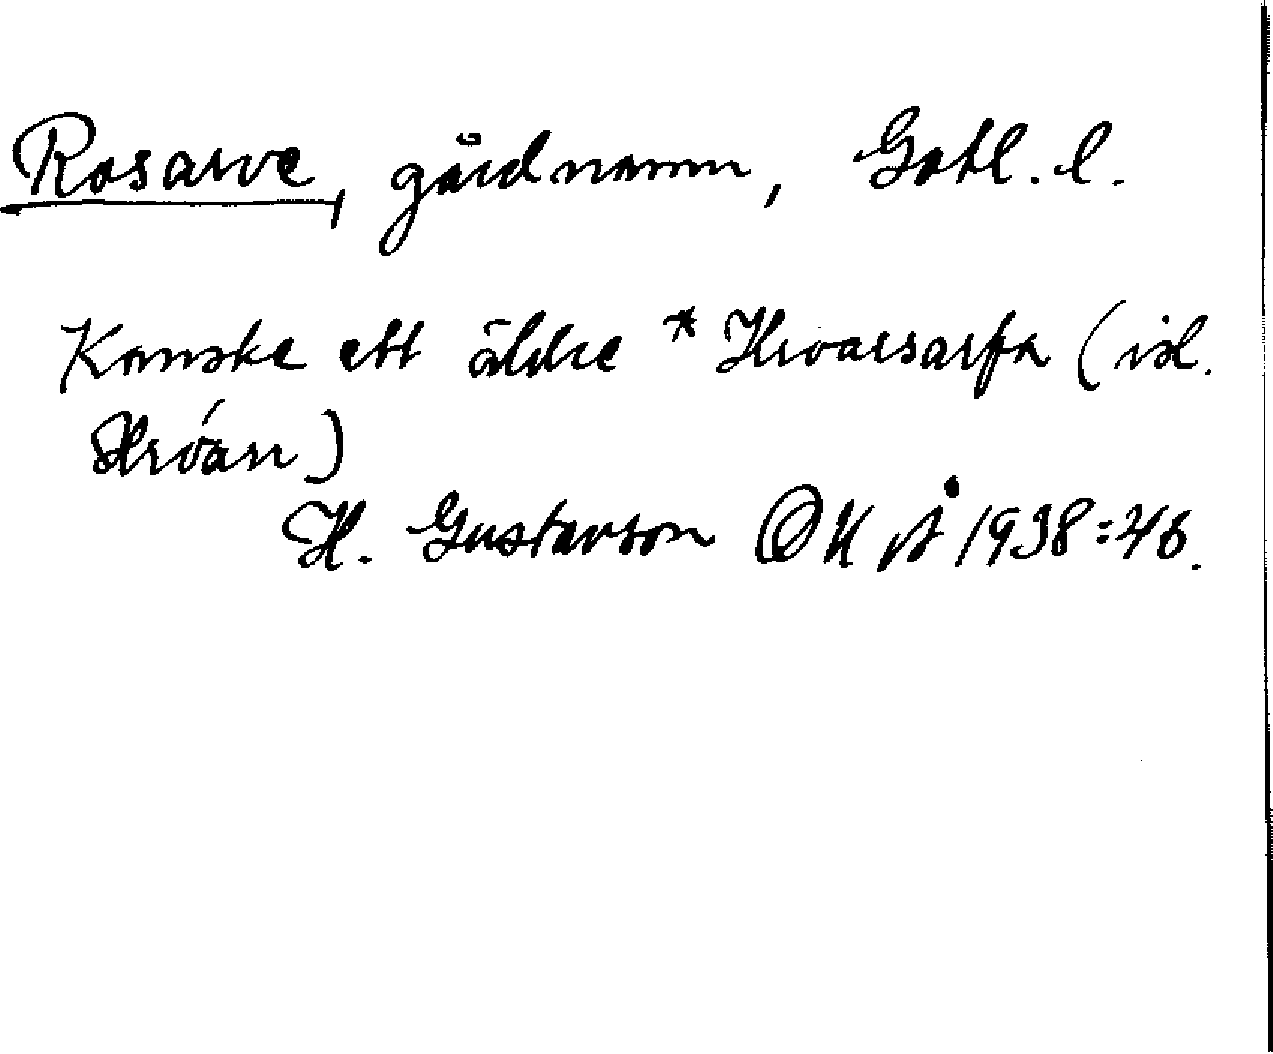 Rosarve, gårdnamn, Gotl. l.
Kanske ett äldre * Hroarsarfa (isl.
Hróarr)
H. Gustavson OKÅ 1938:46.